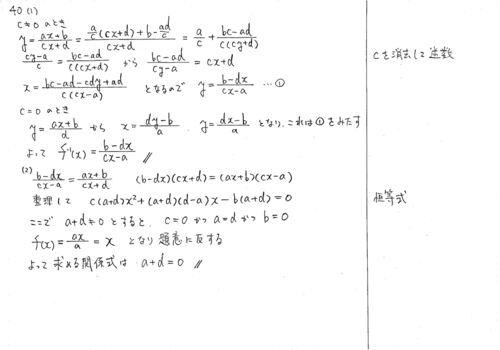 40 (1)
c≠0 のとき
y = (ax+b)/(cx+d) = (a/c (cx+d) + b - ad/c)/(cx+d) = a/c + (bc-ad)/(c(cy+d))
(cy-a)/c = (bc-ad)/(c(cx+d)) から (bc-ad)/(cy-a) = cx+d
x = (bc-ad-cdy+ad)/(c(cx-a)) となるので y = (b-dx)/(cx-a) …①
c=0 のとき
y = (ax+b)/d から x = (dy-b)/a y = (dx-b)/a となり、これは①をみたす
よって f⁻¹(x) = (b-dx)/(cx-a) //
(2) (b-dx)/(cx-a) = (ax+b)/(cx+d) (b-dx)(cx+d) = (ax+b)(cx-a)
整理して c(a+d)x² + (a+d)(d-a)x - b(a+d) = 0
ここで a+d≠0 とすると、c=0 かつ a=d かつ b=0
f(x) = ax/a = x となり 題意に反する
よって 求める関係式は a+d=0 //
cを消去して逆数
恒等式